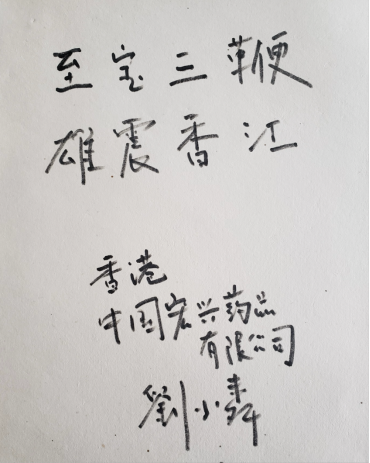 至宝三鞭
雄震香江
香港
中国宏兴药品
有限公司
劉小